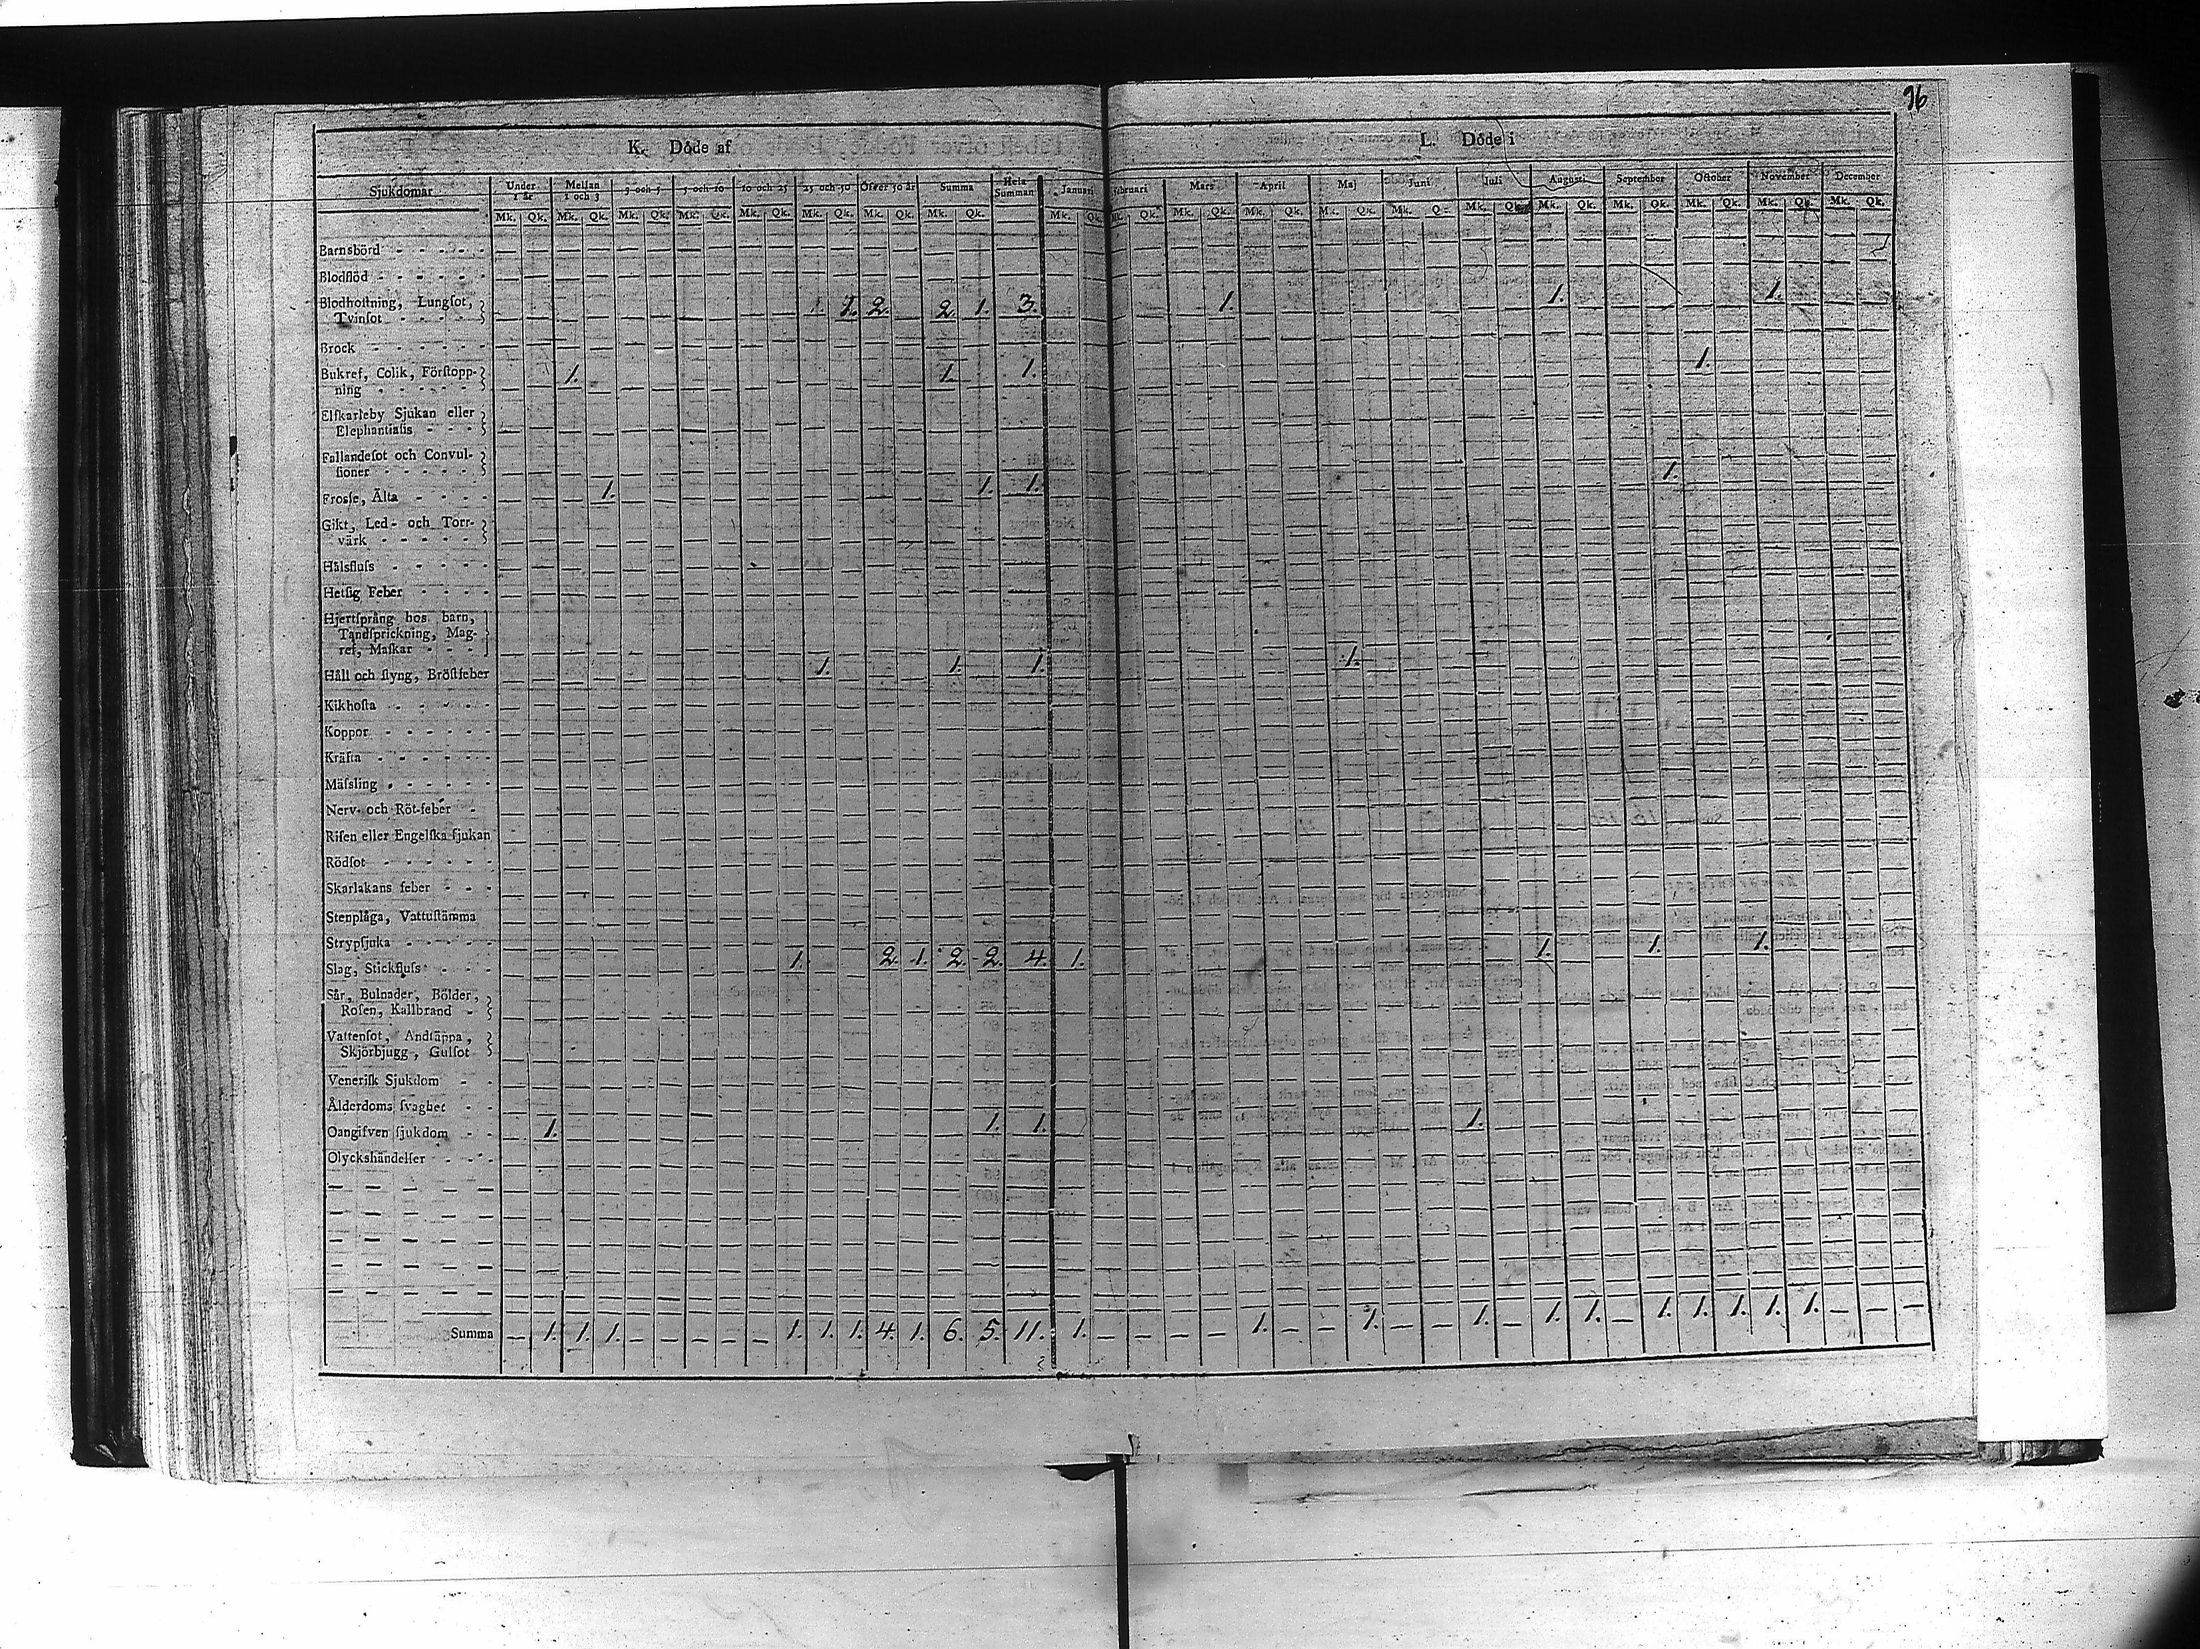 96
K. Döde af
L. Döde i
Sjukdomar Under 1 år Mellan 1 och 3 3 och 5 5 och 10 10 och 25 25 och 50 Öfver 50 år Summa Hela Summan Januari Februari Mars April Maj Juni Juli Augusti September October November December
Mk. Qk. Mk. Qk. Mk. Qk. Mk. Qk. Mk. Qk. Mk. Qk. Mk. Qk. Mk. Qk. Mk. Qk. Mk. Qk. Mk. Qk. Mk. Qk. Mk. Qk. Mk. Qk. Mk. Qk. Mk. Qk. Mk. Qk. Mk. Qk. Mk. Qk. Mk. Qk.
Barnsbörd
Blodflöd
Blodhoſtning, Lungſot,
Tvinſot 1. 2. 2. 1. 3. 1. 1. 1.
Brock
Bukref, Colik, Förſtopp-
ning 1. 1. 1. 1.
Elfkarleby Sjukan eller
Elephantiaſis
Fallandeſot och Convul-
ſioner
Frosſe, Älta 1. 1. 1. 1.
Gikt, Led- och Torr-
värk
Halsfluſs
Hetſig Feber
Hjertſprång hos barn,
Tandſprickning, Mag-
ref, Maſkar
Håll och ſtyng, Bröſtfeber 1. 1. 1. 1.
Kikhoſta
Koppor
Kräfta
Mäſsling
Nerv- och Röt-feber
Riſen eller Engelſka ſjukan
Rödſot
Skarlakans feber
Stenplåga, Vattuſtämma
Strypſjuka
Slag, Stickfluſs 1. 2. 1. 2. 2. 4. 1. 1. 1. 1.
Sår, Bulnader, Bölder,
Roſen, Kallbrand
Vattenſot, Andtäppa,
Skjörbjugg, Gulſot
Veneriſk Sjukdom
Ålderdoms ſvaghet
Oangifven ſjukdom 1. 1. 1. 1.
Olyckshändelſer
Summa — 1. 1. 1. — — — — — 1. 1. 1. 4. 1. 6. 5. 11. 1. — — — — 1. — — 1. — — 1. — 1. 1. — 1. 1. 1. 1. 1. — — —